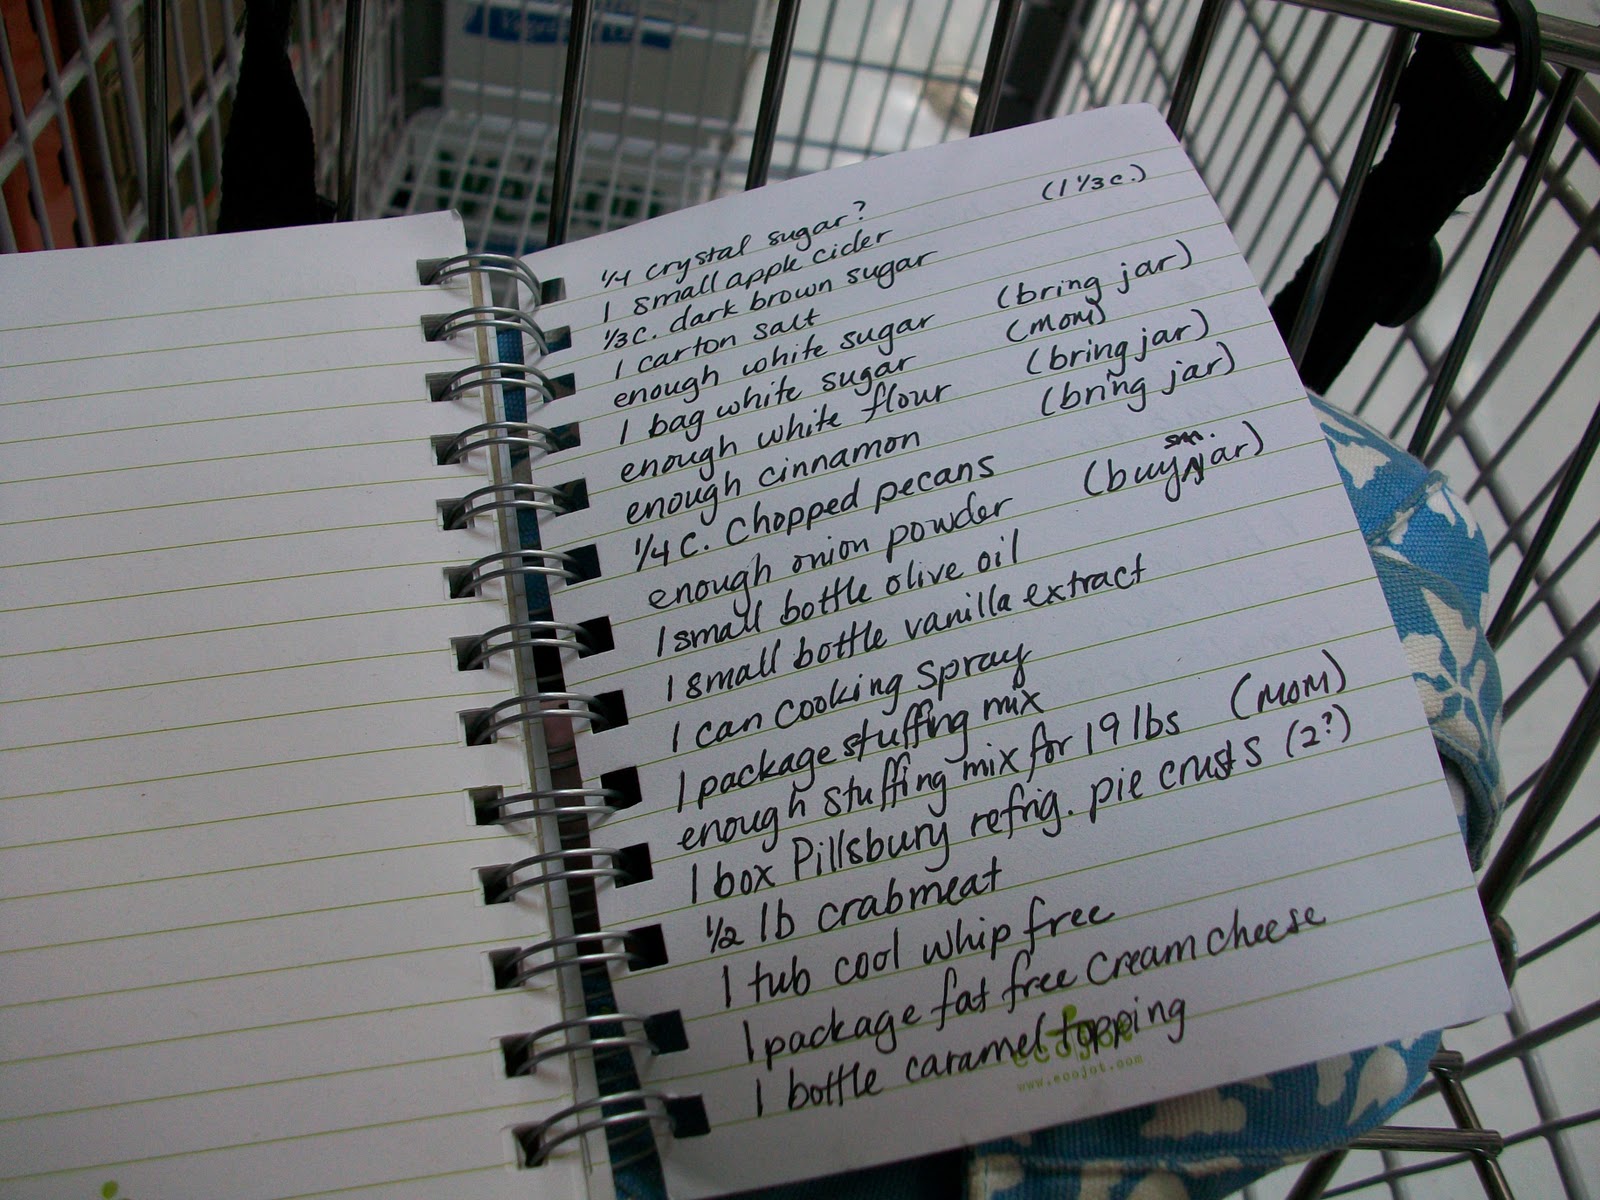 1/4 crystal sugar?
1 small apple cider (1 1/3 c.)
1/3 c. dark brown sugar
1 carton salt
enough white sugar (bring jar)
1 bag white sugar (mom)
enough white flour (bring jar)
enough cinnamon (bring jar)
1/4 c. Chopped pecans
enough onion powder (buy sm. jar)
1 small bottle olive oil
1 small bottle vanilla extract
1 can cooking spray
1 package stuffing mix
enough stuffing mix for 19 lbs (mom)
1 box Pillsbury refrig. pie crusts (2?)
1/2 lb crabmeat
1 tub cool whip free
1 package fat free cream cheese
1 bottle caramel topping
ecojot
www.ecojot.com